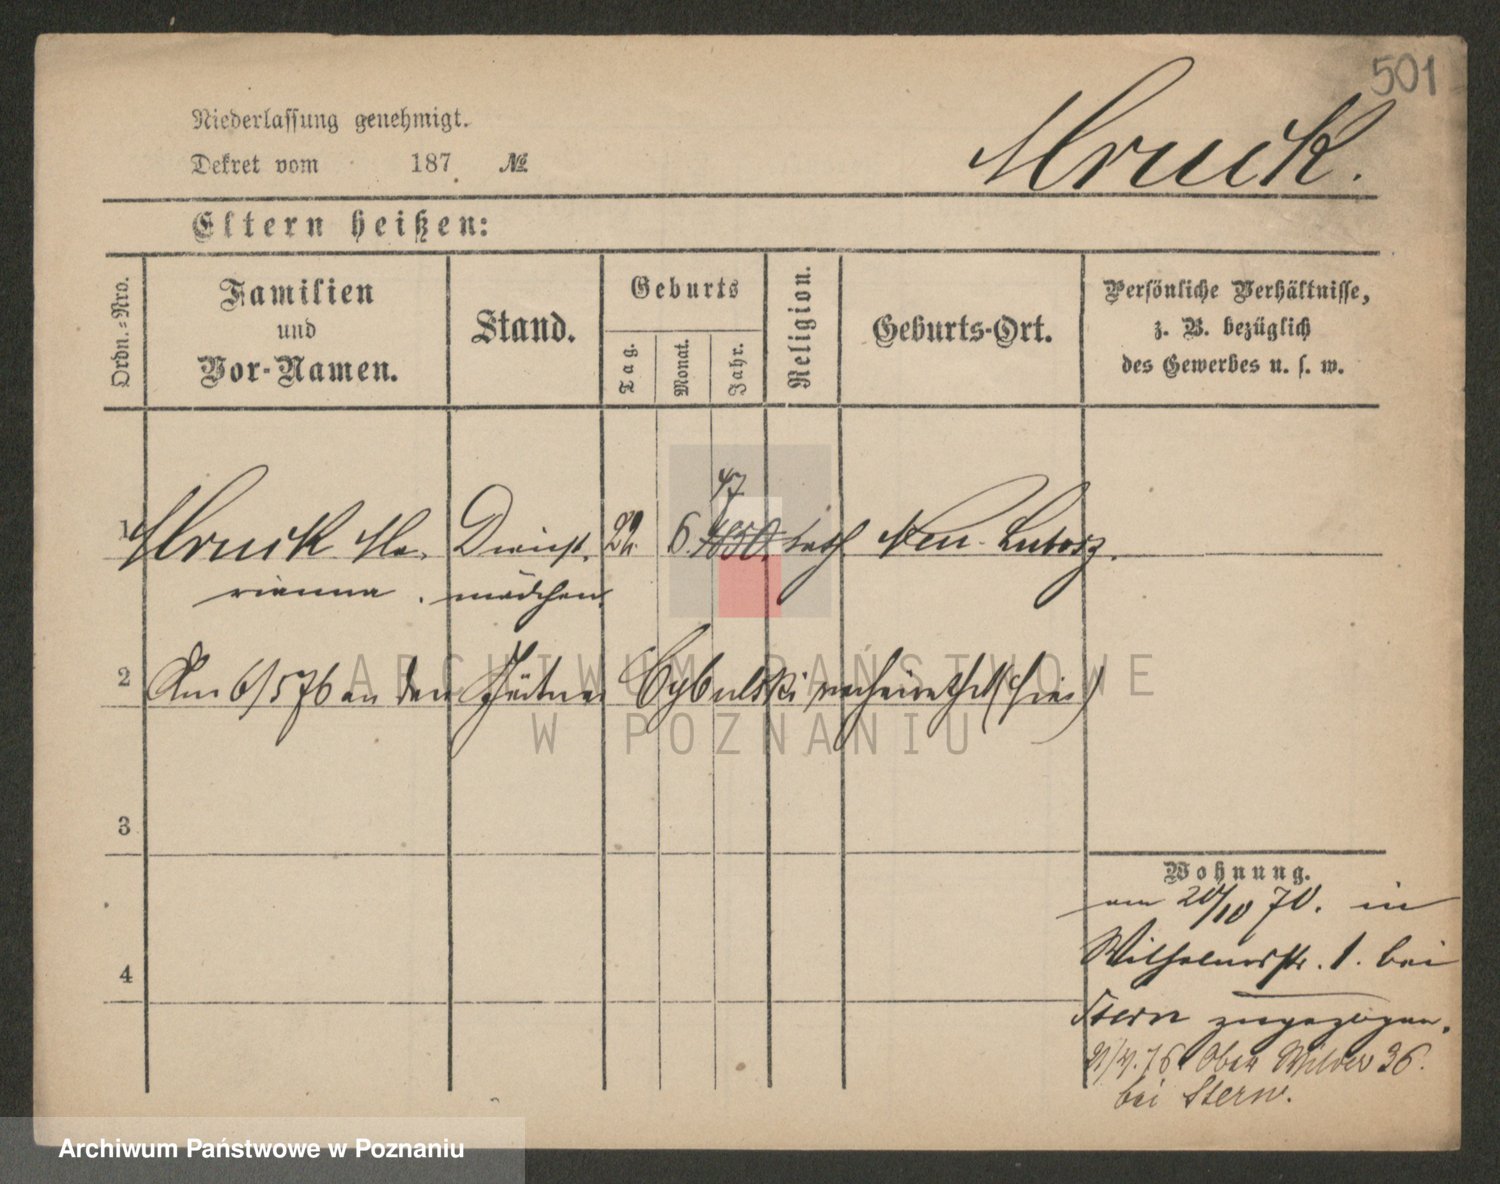 501
Niederlassung genehmigt.
Dekret vom 187 . №
Mruck.
Eltern heißen:
Ordn.=Nro.
Familien
und
Vor-Namen.
Stand.
Geburts
Tag.
Monat.
Jahr.
Religion.
Geburts-Ort.
Persönliche Verhältnisse,
z. B. bezüglich
des Gewerbes u. s. w.
47
1 Mruck Ma- Dienst- 22. 6. 1850. kath Neu-Luborz.
rianna. mädchen.
2 Am 6/5 76 an den Cybulski verheirathet (hier)
3
4
Wohnung.
am 20/10 70. in
Wilhelmsstr. 1. bei
Stern zugezogen.
76 Ober Wilder 36.
bei Stern.
ARCHIWUM PAŃSTWOWE
W POZNANIU
Archiwum Państwowe w Poznaniu